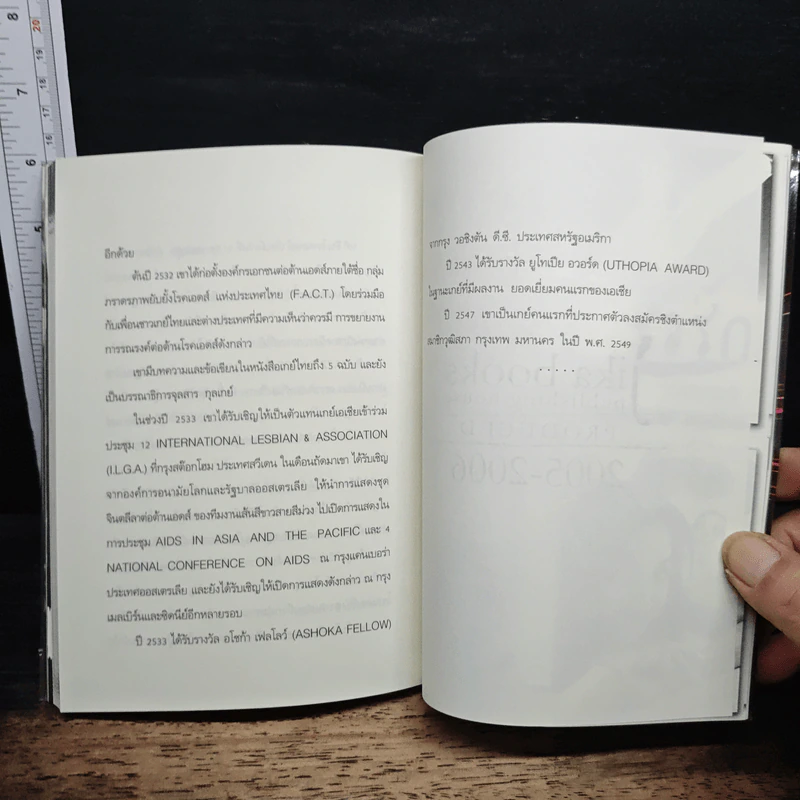 อีกด้วย
ต้นปี 2532 เขาได้ก่อตั้งองค์กรเอกชนต่อต้านเอดส์ภายใต้ชื่อ กลุ่ม
ภราดรภาพยับยั้งโรคเอดส์ แห่งประเทศไทย (F.A.C.T.) โดยร่วมมือ
กับเพื่อนชาวเกย์ไทยและต่างประเทศที่มีความเห็นว่าควรมี การขยายงาน
การรณรงค์ต่อต้านโรคเอดส์ดังกล่าว
เขามีบทความและข้อเขียนในหนังสือเกย์ไทยถึง 5 ฉบับ และยัง
เป็นบรรณาธิการจุลสาร กุลเกย์
ในช่วงปี 2533 เขาได้รับเชิญให้เป็นตัวแทนเกย์เอเชียเข้าร่วม
ประชุม 12 INTERNATIONAL LESBIAN & ASSOCIATION
(I.L.G.A.) ที่กรุงสต๊อกโฮม ประเทศสวีเดน ในเดือนถัดมาเขา ได้รับเชิญ
จากองค์การอนามัยโลกและรัฐบาลออสเตรเลีย ให้นำการแสดงชุด
จินตลีลาต่อต้านเอดส์ ของทีมงานเส้นสีขาวสายสีม่วง ไปเปิดการแสดงใน
การประชุม AIDS IN ASIA AND THE PACIFIC และ 4
NATIONAL CONFERENCE ON AIDS ณ กรุงแคนเบอร่า
ประเทศออสเตรเลีย และยังได้รับเชิญให้เปิดการแสดงดังกล่าว ณ กรุง
เมลเบิร์นและซิดนีย์อีกหลายรอบ
ปี 2533 ได้รับรางวัล อโชก้า เฟลโลว์ (ASHOKA FELLOW)
จากกรุง วอชิงตัน ดี.ซี. ประเทศสหรัฐอเมริกา
ปี 2543 ได้รับรางวัล ยูโทเปีย อวอร์ด (UTHOPIA AWARD)
ในฐานะเกย์ที่มีผลงาน ยอดเยี่ยมคนแรกของเอเซีย
ปี 2547 เขาเป็นเกย์คนแรกที่ประกาศตัวลงสมัครชิงตำแหน่ง
สมาชิกวุฒิสภา กรุงเทพ มหานคร ในปี พ.ศ. 2549
.....
ika books
2005-2006
8
7
6
20
19
18
17
16